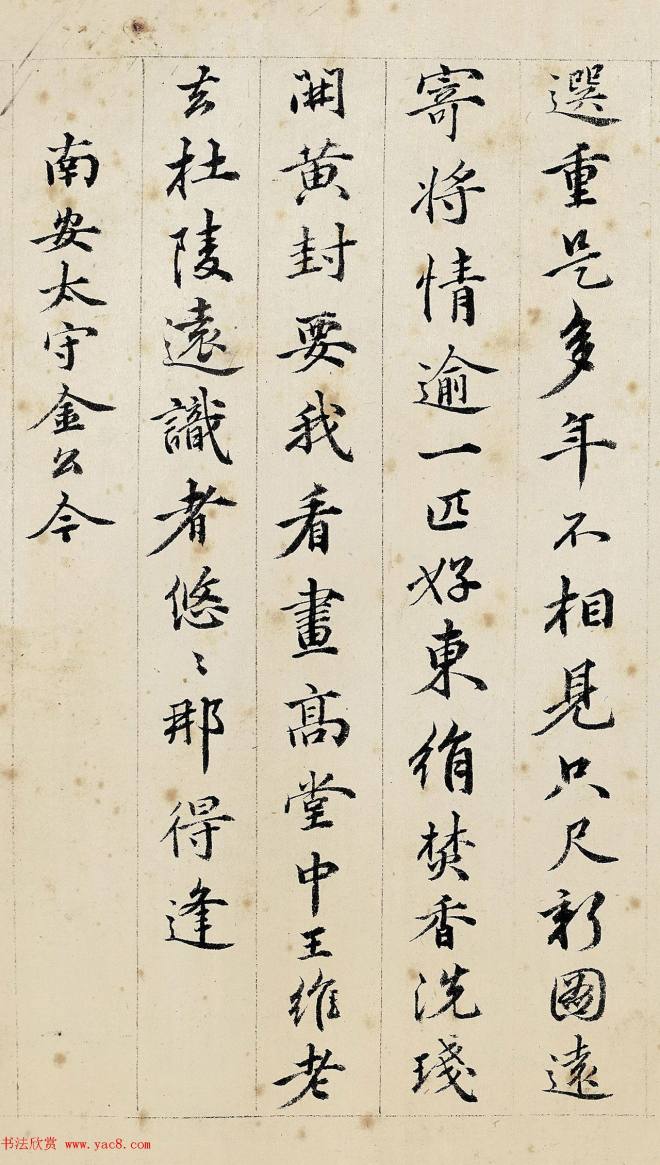 選重是多年不相見只尺新圖遠
寄將情逾一匹好東絹焚香洗琖
開黃封要我看畫高堂中王維老
去杜陵遠識者悠〻那得逢
南安太守金公今
书法欣赏 www.yac8.com